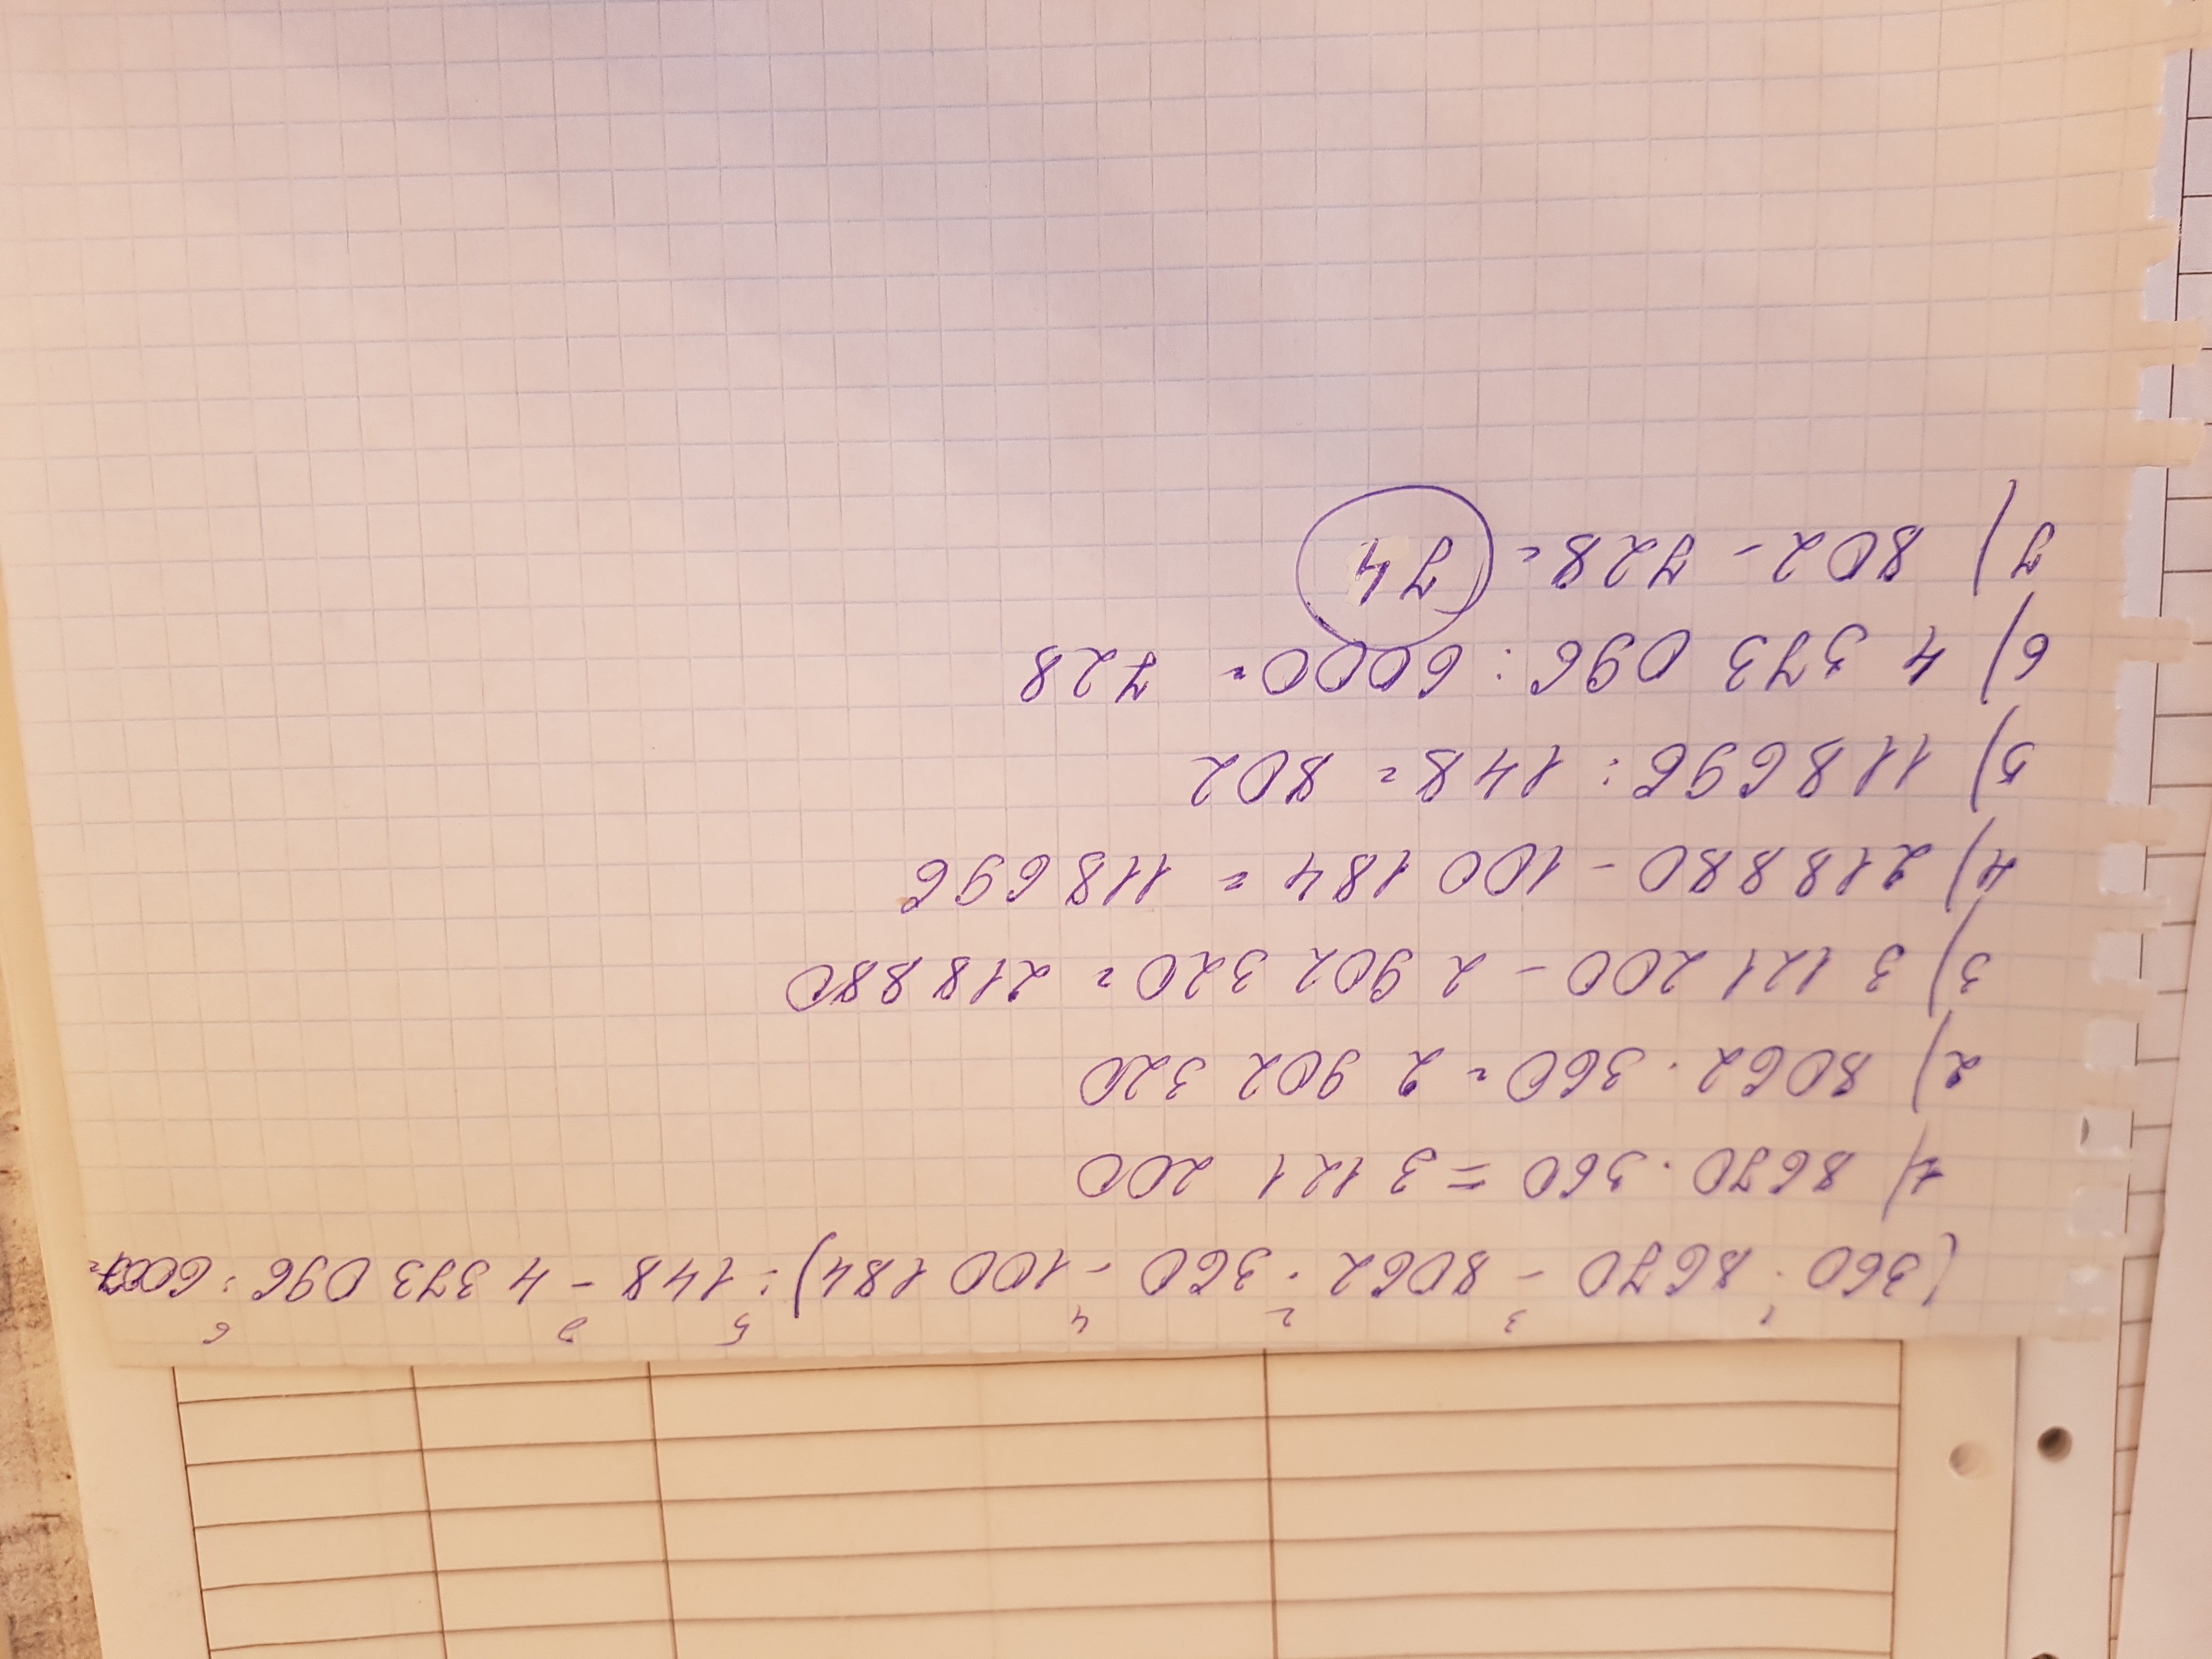 1 3 2 4 5 8 6
(360 · 8670 - 8062 · 360 - 100 184) : 148 - 4 373 096 : 6007=
1) 8670 · 360 = 3 121 200
2) 8062 · 360 = 2 902 320
3) 3 121 200 - 2 902 320 = 218 880
4) 218 880 - 100 184 = 118 696
5) 118696 : 148 = 802
6) 4 373 096 : 6000 = 728
7) 802 - 728 = 74